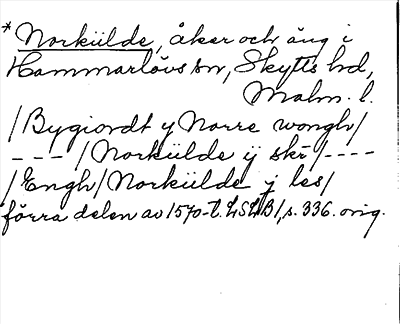 * Norkülde, åker och äng i
Hammarlövs sn, Skytts hd,
Malm. l.
/Bygiordt y Norre wongh/
--- /Norkülde ÿ skr/----
/Engh/Norkülde y les/
förra delen av 1570-t. LSLB1, s. 336. orig.